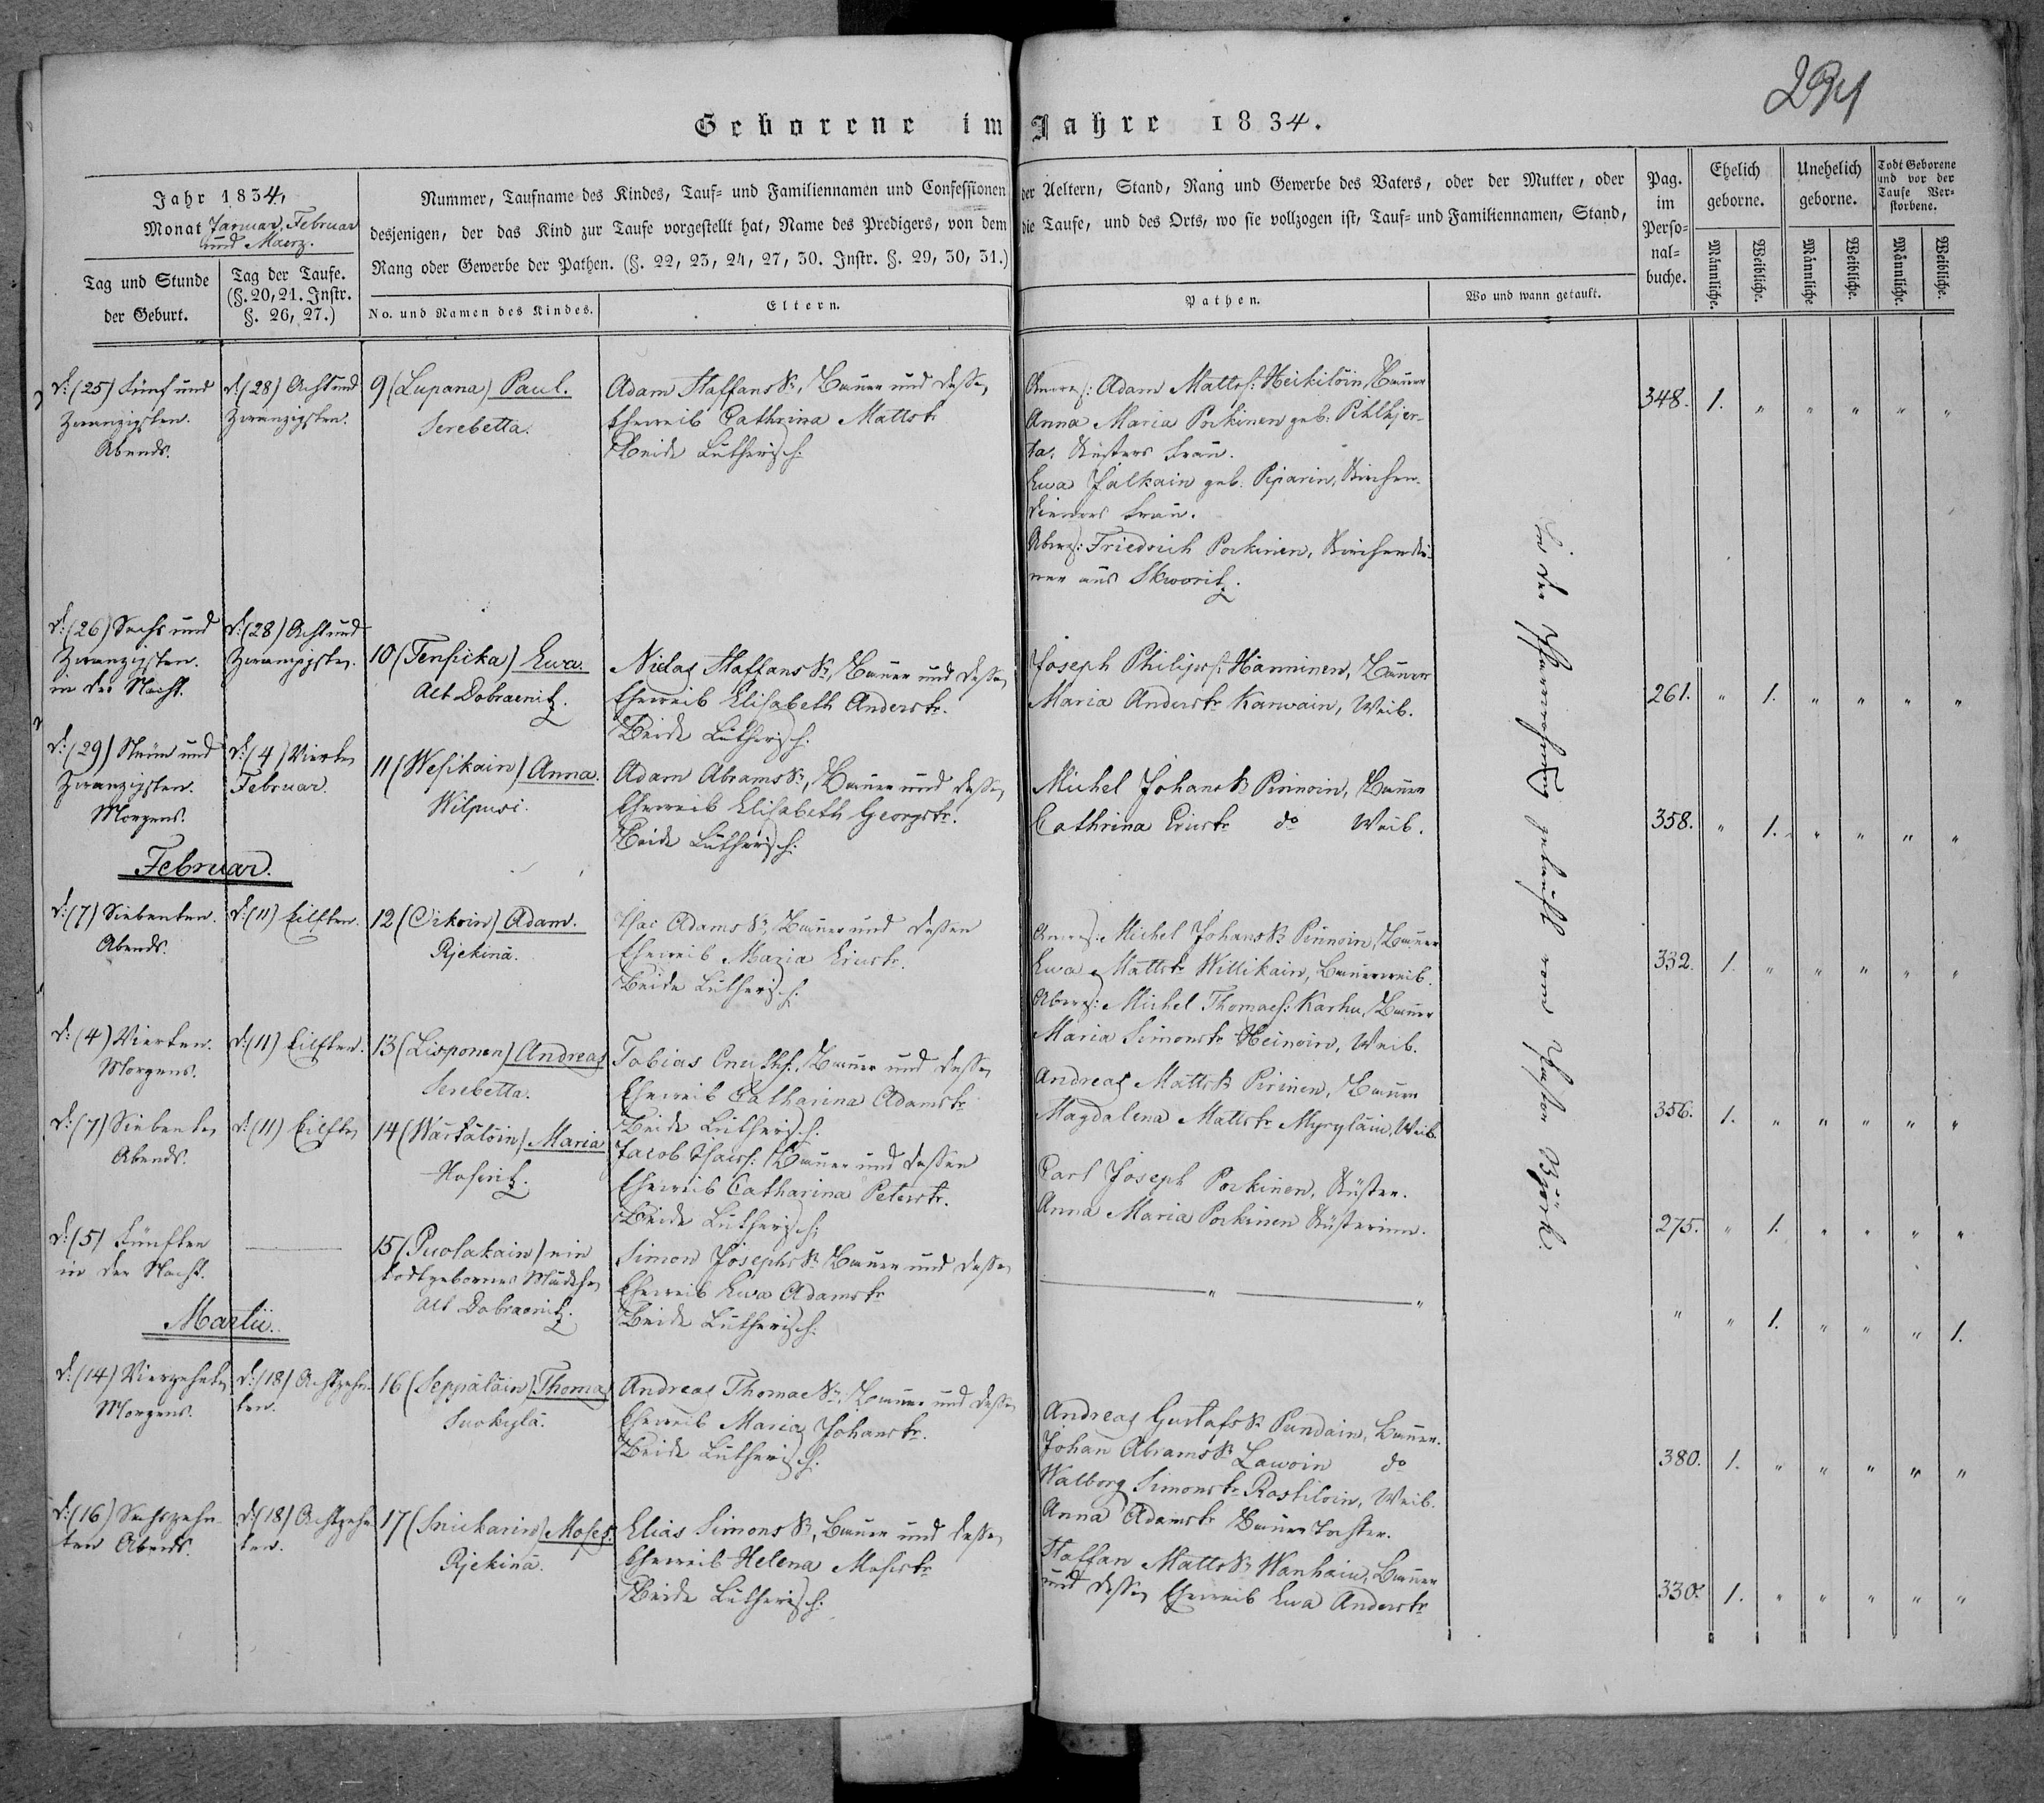 294
Geborene im Jahre 1834.
Jahr 1834,
Monat Januar, Februar
und Maerz.
Tag und Stunde
der Geburt.
Tag der Taufe.
(§. 20, 21. Instr.
§. 26, 27.)
Nummer, Taufname des Kindes, Tauf- und Familiennamen und Confessionen der Aeltern, Stand, Rang und Gewerbe des Vaters, oder der Mutter, oder
desjenigen, der das Kind zur Taufe vorgestellt hat, Name des Predigers, von dem die Taufe, und des Orts, wo sie vollzogen ist, Tauf- und Familiennamen, Stand,
Rang oder Gewerbe der Pathen. (§. 22, 23, 24, 27, 30. Instr. §. 29, 30, 31.)
No. und Namen des Kindes.
Eltern.
Pathen.
Wo und wann getauft.
Pag.
im
Perso-
nal-
buche.
Ehelich
geborne.
Unehelich
geborne.
Todt Geborene
und vor der
Taufe Ver-
storbene.
Männliche.
Weibliche.
Männliche
Weibliche.
Männliche.
Weibliche.
d: (25) Fünf und
Zwanzigsten.
Abends.
d: (28) Acht und
Zwanzigsten.
9 (Lupana) Paul.
Serebetta.
Adam Staffans Sn, Bauer und dessen
Eheweib Cathrina Mattstr
Beide Lutherisch.
Adam Mattss: Heikiloin, Bauer
Anna Maria Porkinen geb. Pihlhjer-
ta. Küsters Frau.
Ewa Jalkain geb. Piparin, Kirchen-
dieners Frau.
Friedrich Porkinen, Kirchendie-
ner aus Skworitz.
348. 1. " " " " "
d: (26) Sechs und
Zwanzigsten.
in der Nacht.
d: (28) Acht und
Zwanzigsten.
10 (Tensicka) Ewa.
Alt Dobraenitz.
Niclas Staffans Sn, Bauer und dessen
Eheweib Elisabeth Anderstr.
Beide Lutherisch.
Joseph Philipss: Hänninen, Bauer
Maria Anderstr Karwain, Weib.
261. " 1. " " " "
d: (29) Neun und
Zwanzigsten.
Morgens.
d: (4) Vierten
Februar.
11 (Wesikain) Anna.
Wilpusi.
Adam Abrams Sn, Bauer und dessen
Eheweib Elisabeth Georgstr.
Beide Lutherisch.
Michel Johans Sn Pinnoin, Bauer
Cathrina Ericstr do Weib.
358. " 1. " " " "
Februar.
d: (7) Siebenten.
Abends.
d: (11) Eilften.
12 (Orkoin) Adam.
Rjekina.
Isac Adams Sn, Bauer und dessen
Eheweib Maria Ericstr.
Beide Lutherisch.
Michel Johans Sn Pinnoin, Bauer
Ewa Mattstr Willikain, Bauerweib.
Michel Thomaes: Karhu, Bauer
Maria Simonstr Heinoin, Weib.
332. 1. " " " " "
d: (4) Vierten.
Morgens.
d: (11) Eilften.
13 (Lisponen) Andreas
Serebetta.
Tobias Bauer und dessen
Eheweib Catharina Adamstr
Beide Lutherisch.
Andreas Matts Sn Pirinen, Bauer
Magdalena Mattstr Myryläin, Weib.
356. 1. " " " " "
d: (7) Siebenten
Abends.
d: (11) Eilften
14 (Wärtälöin) Maria
Hosnitz.
Jacob Isacss: Bauer und dessen
Eheweib Catharina Peterstr.
Beide Lutherisch.
Carl Joseph Porkinen, Küster.
Anna Maria Porkinen Küsterinn.
275. " 1. " " " "
d: (5) Fünften
in der Nacht.
15 (Puolakain) ein
todtgebornes Mädchen
Alt Dobraenitz.
Simon Josephs Sn Bauer und dessen
Eheweib Ewa Adamstr
Beide Lutherisch.
" "
" " 1. " " " 1.
Martii.
d: (14) Vierzehnten
Morgens.
d: (18) Achtzehn-
ten.
16 (Seppäläin) Thomas
Suokylä.
Andreas Thomae Sn, Bauer und dessen
Eheweib Maria Johanstr.
Beide Lutherisch.
Andreas Gustafs Sn Pundain, Bauer.
Johan Abrams Sn Lawoin do
Walborg Simonstr Rostiloin, Weib.
Anna Adamstr Bauer Tochter.
380. 1. " " " " "
d: (16) Sechszehn-
ten Abends.
d: (18) Achtzehn-
ten.
17 (Snickarin) Moses.
Rjekina.
Elias Simons Sn, Bauer und dessen
Eheweib Helena Mosestr
Beide Lutherisch.
Staffan Matts Sn Wanhain, Bauer
und dessen Eheweib Ewa Anderstr
330. 1. " " " " "
In der Pfarrwohnung getauft vom Pastor Björk.